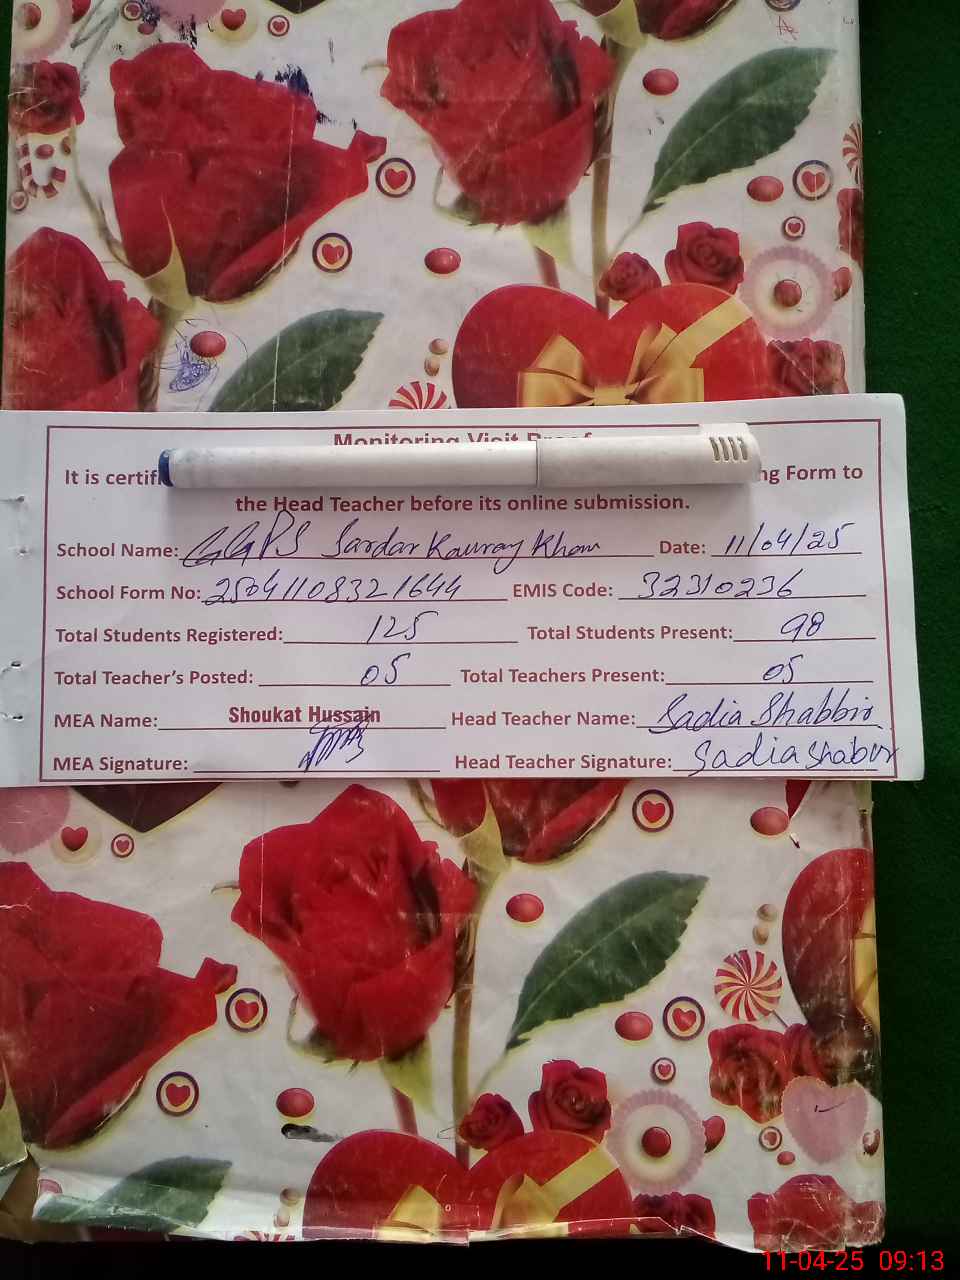 Monitoring Visit Proof
It is certif ng Form to
the Head Teacher before its online submission.
School Name: GGPS Sardar Kauray Khan Date: 11/04/25
School Form No: 25041108321644 EMIS Code: 32310236
Total Students Registered: 125 Total Students Present: 98
Total Teacher's Posted: 05 Total Teachers Present: 05
MEA Name: Shoukat Hussain Head Teacher Name: Sadia Shabbir
MEA Signature: Head Teacher Signature: Sadia Shabbir
11-04-25 09:13